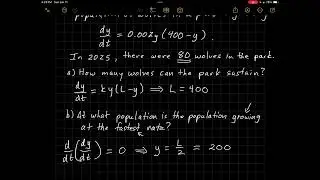 dy/dt = 0.002y(400-y).
In 2025, there were 80 wolves in the park.
a) How many wolves can the park sustain?
dy/dt = ky(L-y) ⇒ L = 400
b) At what population is the population growing
at the fastest rate?
d/dt(dy/dt) = 0 ⇒ y = L/2 = 200